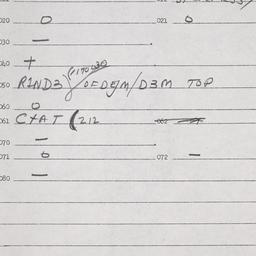 020 0 021 0
030 —
040 +
050 R2ND3 OF DEJM/D3M TOP
060 0
061 C+AT (212
070 —
071 0 072 —
080 —